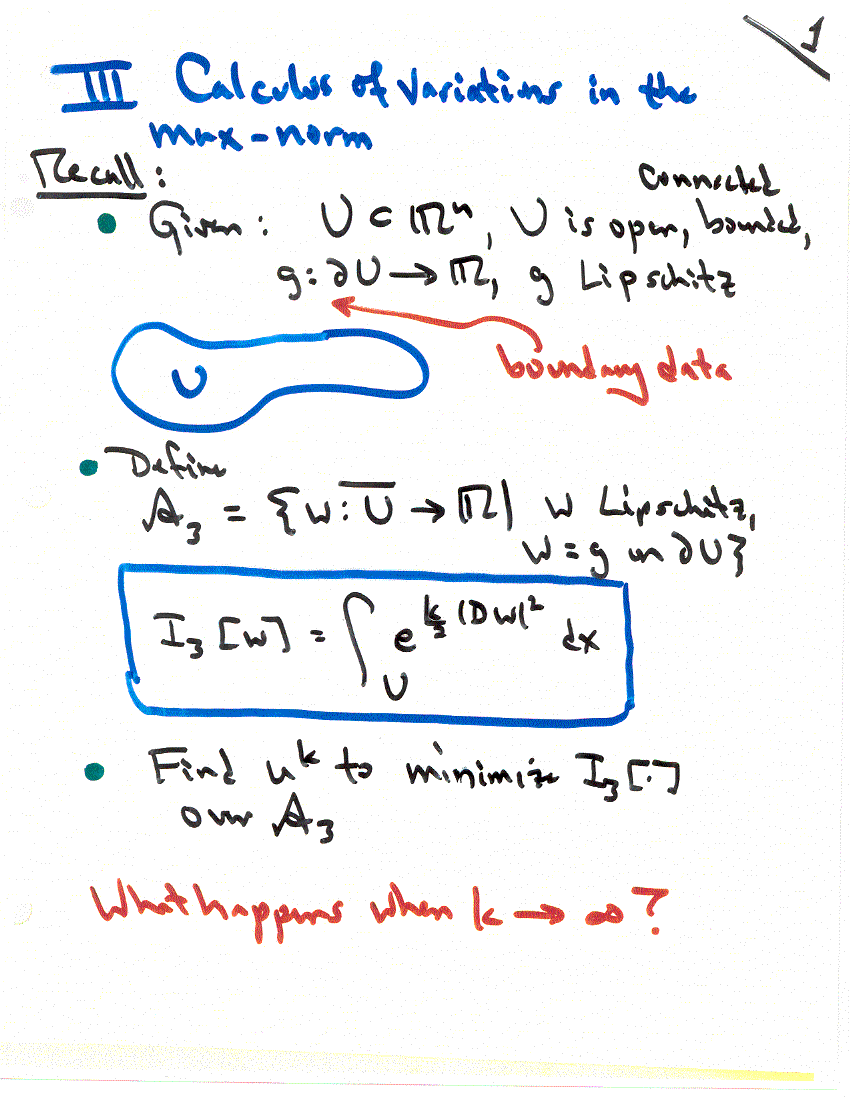 1
III Calculus of Variations in the
max-norm
Recall:
connected
• Given: U ⊂ ℝⁿ, U is open, bounded,
g: ∂U → ℝ, g Lipschitz
boundary data
U
• Define
A₃ = {w: U̅ → ℝ | w Lipschitz,
w = g on ∂U}
I₃[w] = ∫_U e^{k/2 |Dw|²} dx
• Find uᵏ to minimize I₃[·]
over A₃
What happens when k → ∞?